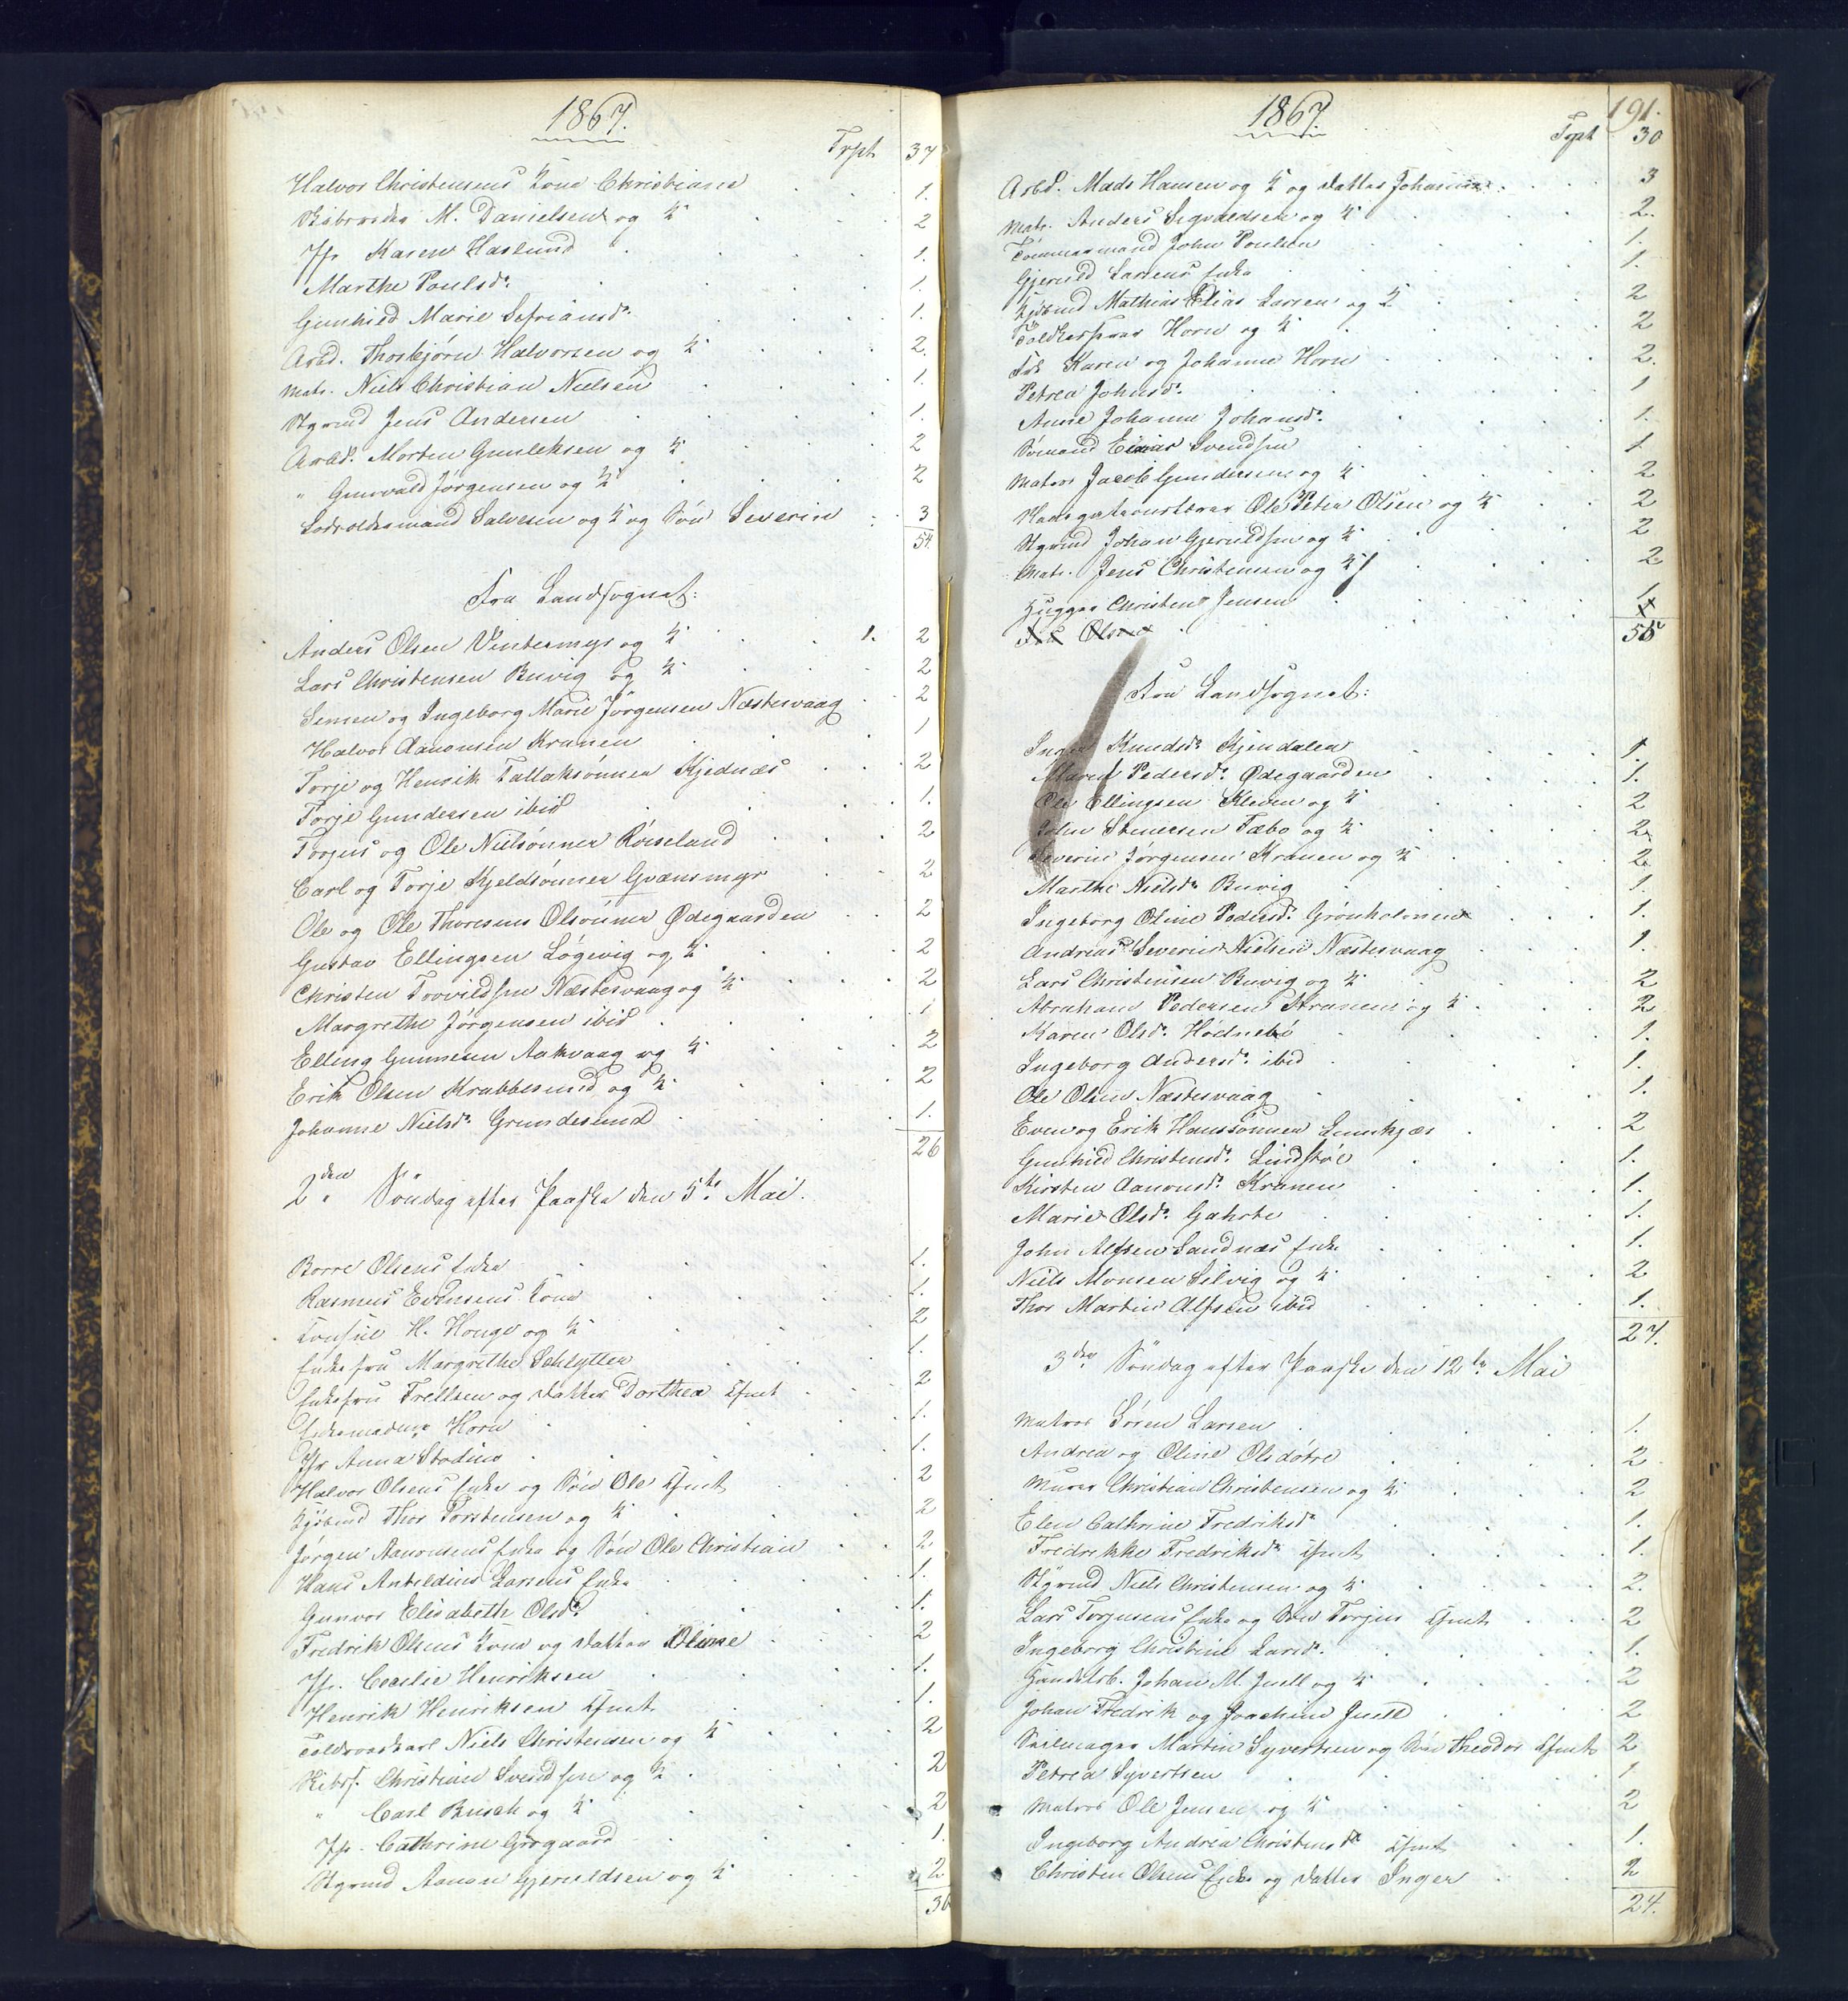 1867.
Trpt 37
Halvor Christensens Kone Christiane 1.
M. Danielsen og K. 2
Jfr Karen Haslund 1.
Marthe Poulsdr. 1.
Gunhild Marie Sefriansdr. 1.
Arbd. Thorbjørn Halvorsen og K. 2.
Matr. Niels Christian Nielsen 1.
Styrmd Jens Andersen 1.
Arbd. Morten Gunleksen og K. 2
" Gunvald Jørgensen og K. 2
Lodsoldermand Salvesen og K. og Søn Severin 3
54.
Fra Landsognet:
Anders Olsen Vintermyr og K. 1. 2
Lars Christensen Buvig og K. 2
Simen og Ingeborg Marie Jørgensen Næstesvaag 2
Halvor Aanonsen Kranen 1
Torje og Henrik Tallaksønner Kjednæs 2
Torje Gundersen ibid 1.
Torjus og Ole Nielsønner Røiseland 2
Carl og Torje Kjeldsønner Grænsmyr 2
Ole og Ole Thoresens Olsønner Ødegaarden 2
Gustav Ellingsen Løgevig og K. 2
Christen Torvildsen Næstesvaag og K. 2
Margrethe Jørgensen ibid 1
Elling Gunnesen Aakvaag og K. 2
Erik Olsen Krabbesund og K. 2
Johanne Nielsdr. Grundesund 1.
26
2den Søndag efter Paaske den 5te Mai.
Borre Olsens Enke 1.
Rasmus Evensens Kone 1.
Konsul H. Houge og K. 2
Enkefru Margrethe Schlytter 1.
Enkefru Trellsen og Datter Dorthea Kfmt 2
Enkemadme Horn 1.
Jfr Anna Stadius 1.
Halvor Olsens Enke og Søn Ole Kfmt 2
Kjøbmd Thor Torstensen og K. 2
Jørgen Aanonsens Enke og Søn Ole Christian 2
Hans Anteldius Larsens Enke 1.
Gunvor Elisabeth Olsdr. 1.
Fredrik Olsens Kone og Datter Oline 2
Jfr. Cecelie Henriksen 1.
Henrik Henriksen Kfmt 1.
Toldroerkarl Niels Christensen og K. 2
Skibsf. Christian Svendsen og K. 2
" Carl Busch og K. 2
Jfr. Cathrine Grøgaard 1.
Styrmd Aanon Gjeruldsen og K. 2
36
1867
191.
Trpt 30
Arbd. Mads Hansen og K. og Datter Johanne 3
Matr. Anders Sigvaldsen og K. 2.
Tømmermand John Poulsen 1.
Gjeruld Larsens Enke 1.
Kjøbmd Mathias Elias Larsen og K. 2
Toldkasserer Horn og K. 2
Frk Karen og Johanne Horn 2.
Petrea Johnsdr. 1
Anne Johanne Johansdr. 1.
Sømand Einar Svendsen 1
Matros Jacob Gundersen og K. 2
Ole Peter Olsen og K. 2
Styrmd Johan Gjeruldsen og K. 2
Matr. Jens Christensen og K. 2
Hugger Christen Jensen 1
55
Fra Landsognet:
Inger Knudsdr. Kjendalen 1.
Maren Pedersdr. Ødegaarden 1.
Ole Ellingsen Kleven og K. 2
John Stenersen Tæbo og K. 2
Severin Jørgensen Kranen og K. 2
Marthe Nielsdr. Buvig 1.
Ingeborg Oline Pedersdr. Grønholmen 1.
Andreas Severin Nielsen Næstesvaag 1.
Lars Christensen Buvig og K. 2
Abraham Pedersen Kranen og K. 2
Karen Olsdr. Hodnebø 1.
Ingeborg Andersdr. ibid 1.
Ole Olsen Næstesvaag 1.
Even og Erik Hanssønner Eenskjær 2
Gunhild Christensdr. Lindstøl 1.
Kirsten Aanonsdr. Kranen 1.
Marie Olsdr. Gahrte 1.
John Alfsen Sandnæs Enke 1.
Niels Monsen Silvig og K. 2
Thor Martin Alfsen ibid 1.
27.
3die Søndag efter Paaske den 12te Mai
Matros Søren Larsen 1.
Andrea og Oline Olsdøtre 2
Murer Christian Christensen og K. 2
Elen Cathrine Fredriksdr. 1.
Fredrikke Fredriksdr. Kfmt 1.
Styrmd Niels Christensen og K. 2.
Lars Torjussens Enke og Søn Torjus Kfmt 2
Ingeborg Christine Larsdr. 1.
Handelsb. Johan M. Juell og K. 2
Johan Fredrik og Joachim Juell 2
Seilmager Martin Syvertsen og Søn Theodor Kfmt 2
Petrea Syvertsen 1
Matros Ole Jensen og K. 2
Ingeborg Andrea Christensdr. Kfmt 1.
Christen Olsens Enke og Datter Inger 2
24.